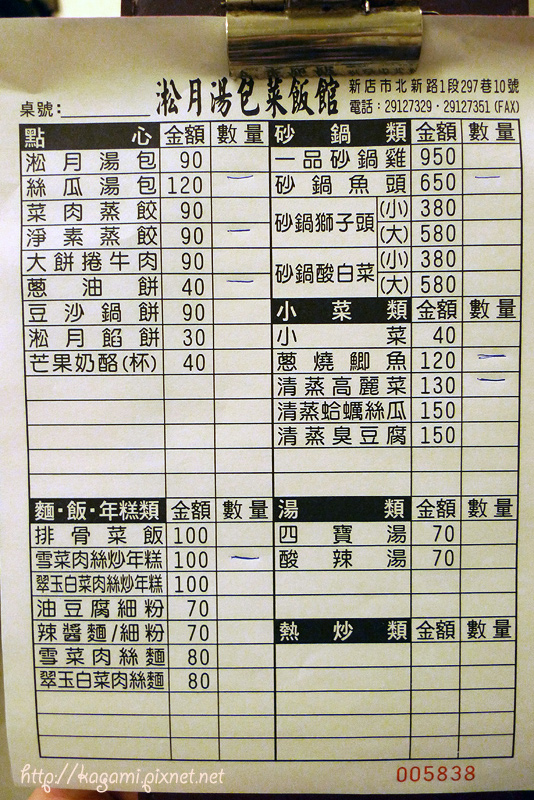 淞月湯包菜飯館
新店市北新路1段297巷10號
桌號：
電話：29127329・29127351(FAX)
點心 金額 數量
淞月湯包 90
絲瓜湯包 120 一
菜肉蒸餃 90
淨素蒸餃 90 一
大餅捲牛肉 90
蔥油餅 40 一
豆沙鍋餅 90
淞月餡餅 30
芒果奶酪(杯) 40
麵・飯・年糕類 金額 數量
排骨菜飯 100
雪菜肉絲炒年糕 100 一
翠玉白菜肉絲炒年糕 100
油豆腐細粉 70
辣醬麵/細粉 70
雪菜肉絲麵 80
翠玉白菜肉絲麵 80
砂鍋類 金額 數量
一品砂鍋雞 950
砂鍋魚頭 650 一
砂鍋獅子頭 (小) 380
(大) 580
砂鍋酸白菜 (小) 380
(大) 580
小菜類 金額 數量
小菜 40
蔥燒鯽魚 120 一
清蒸高麗菜 130 一
清蒸蛤蠣絲瓜 150
清蒸臭豆腐 150
湯類 金額 數量
四寶湯 70
酸辣湯 70
熱炒類 金額 數量
005838
http://kagami.pixnet.net